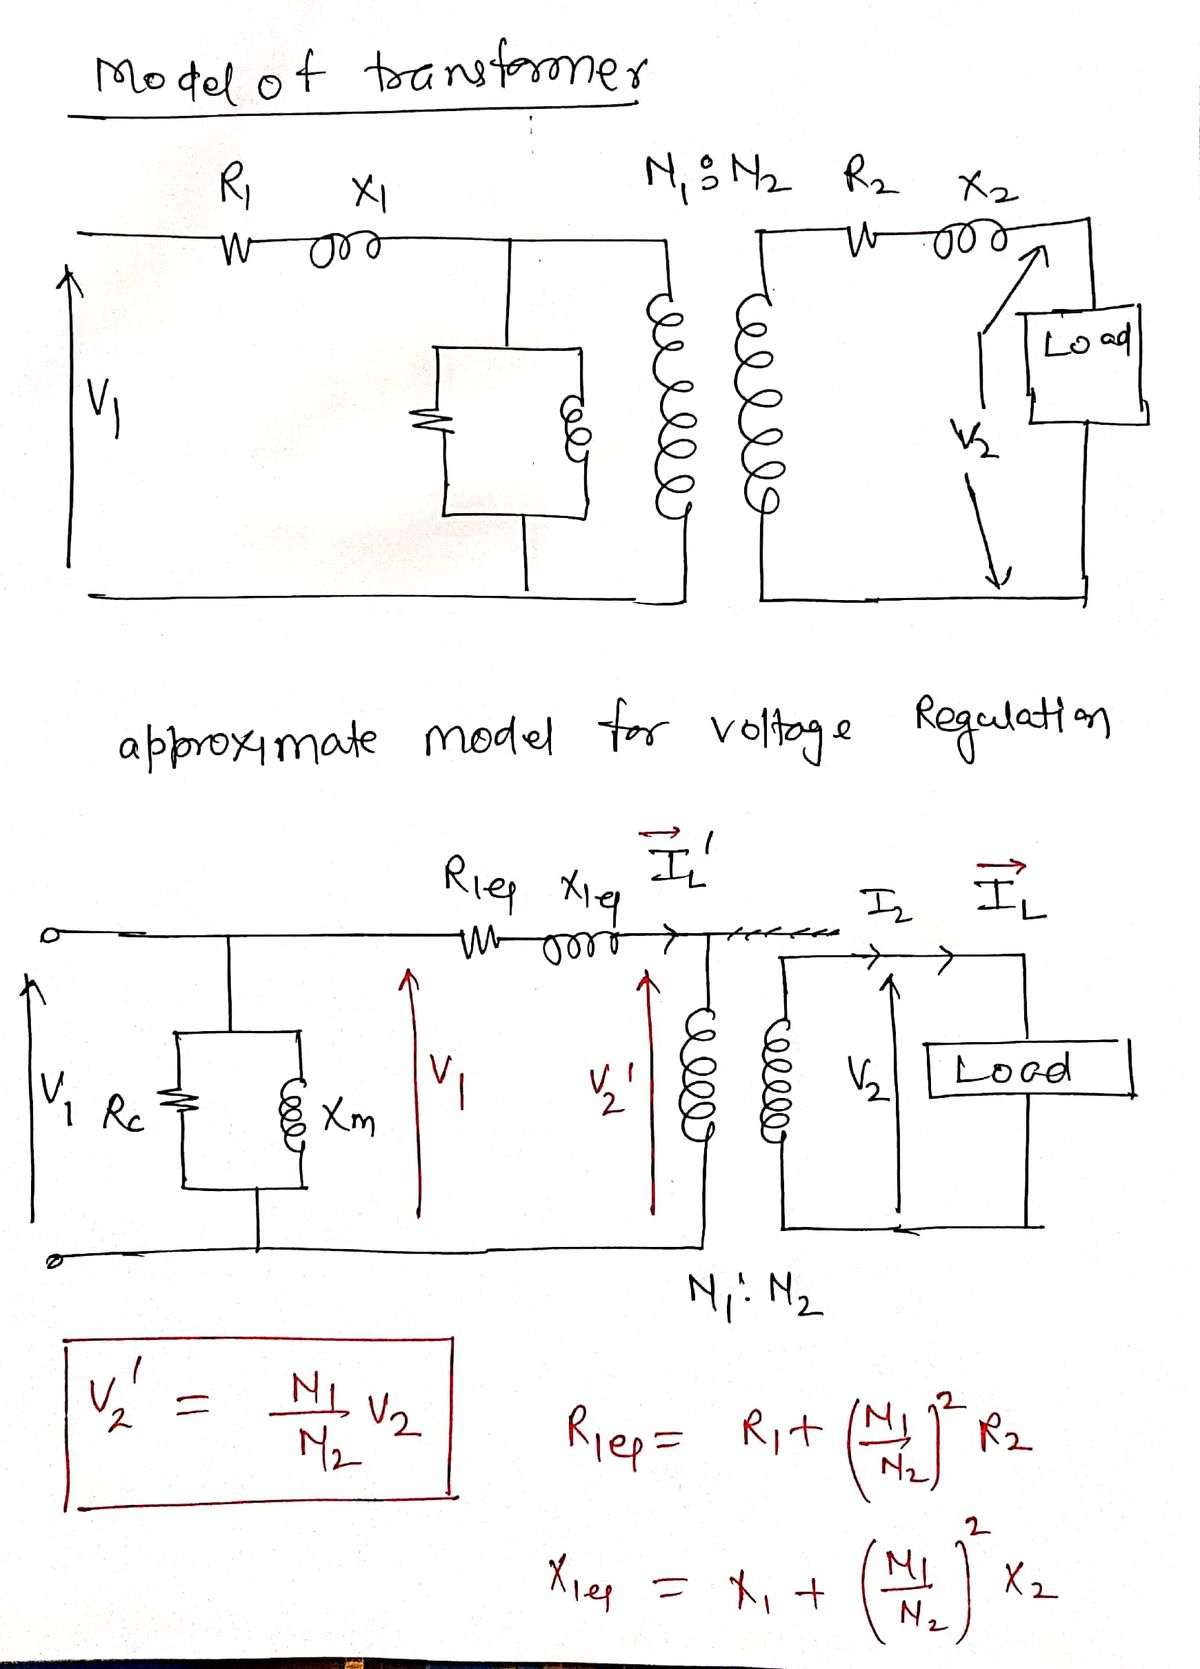 Model of transformer
R₁ X₁ N₁ : N₂ R₂ X₂
Load
V₁
V₂
approximate model for voltage Regulation
R₁eq X₁eq I⃗L' I₂ I⃗L
V₁ Rc Xm V₁ V₂' V₂ Load
N₁ : N₂
V₂' = N₁/N₂ V₂
R₁eq = R₁ + (N₁/N₂)² R₂
X₁eq = X₁ + (N₁/N₂)² X₂